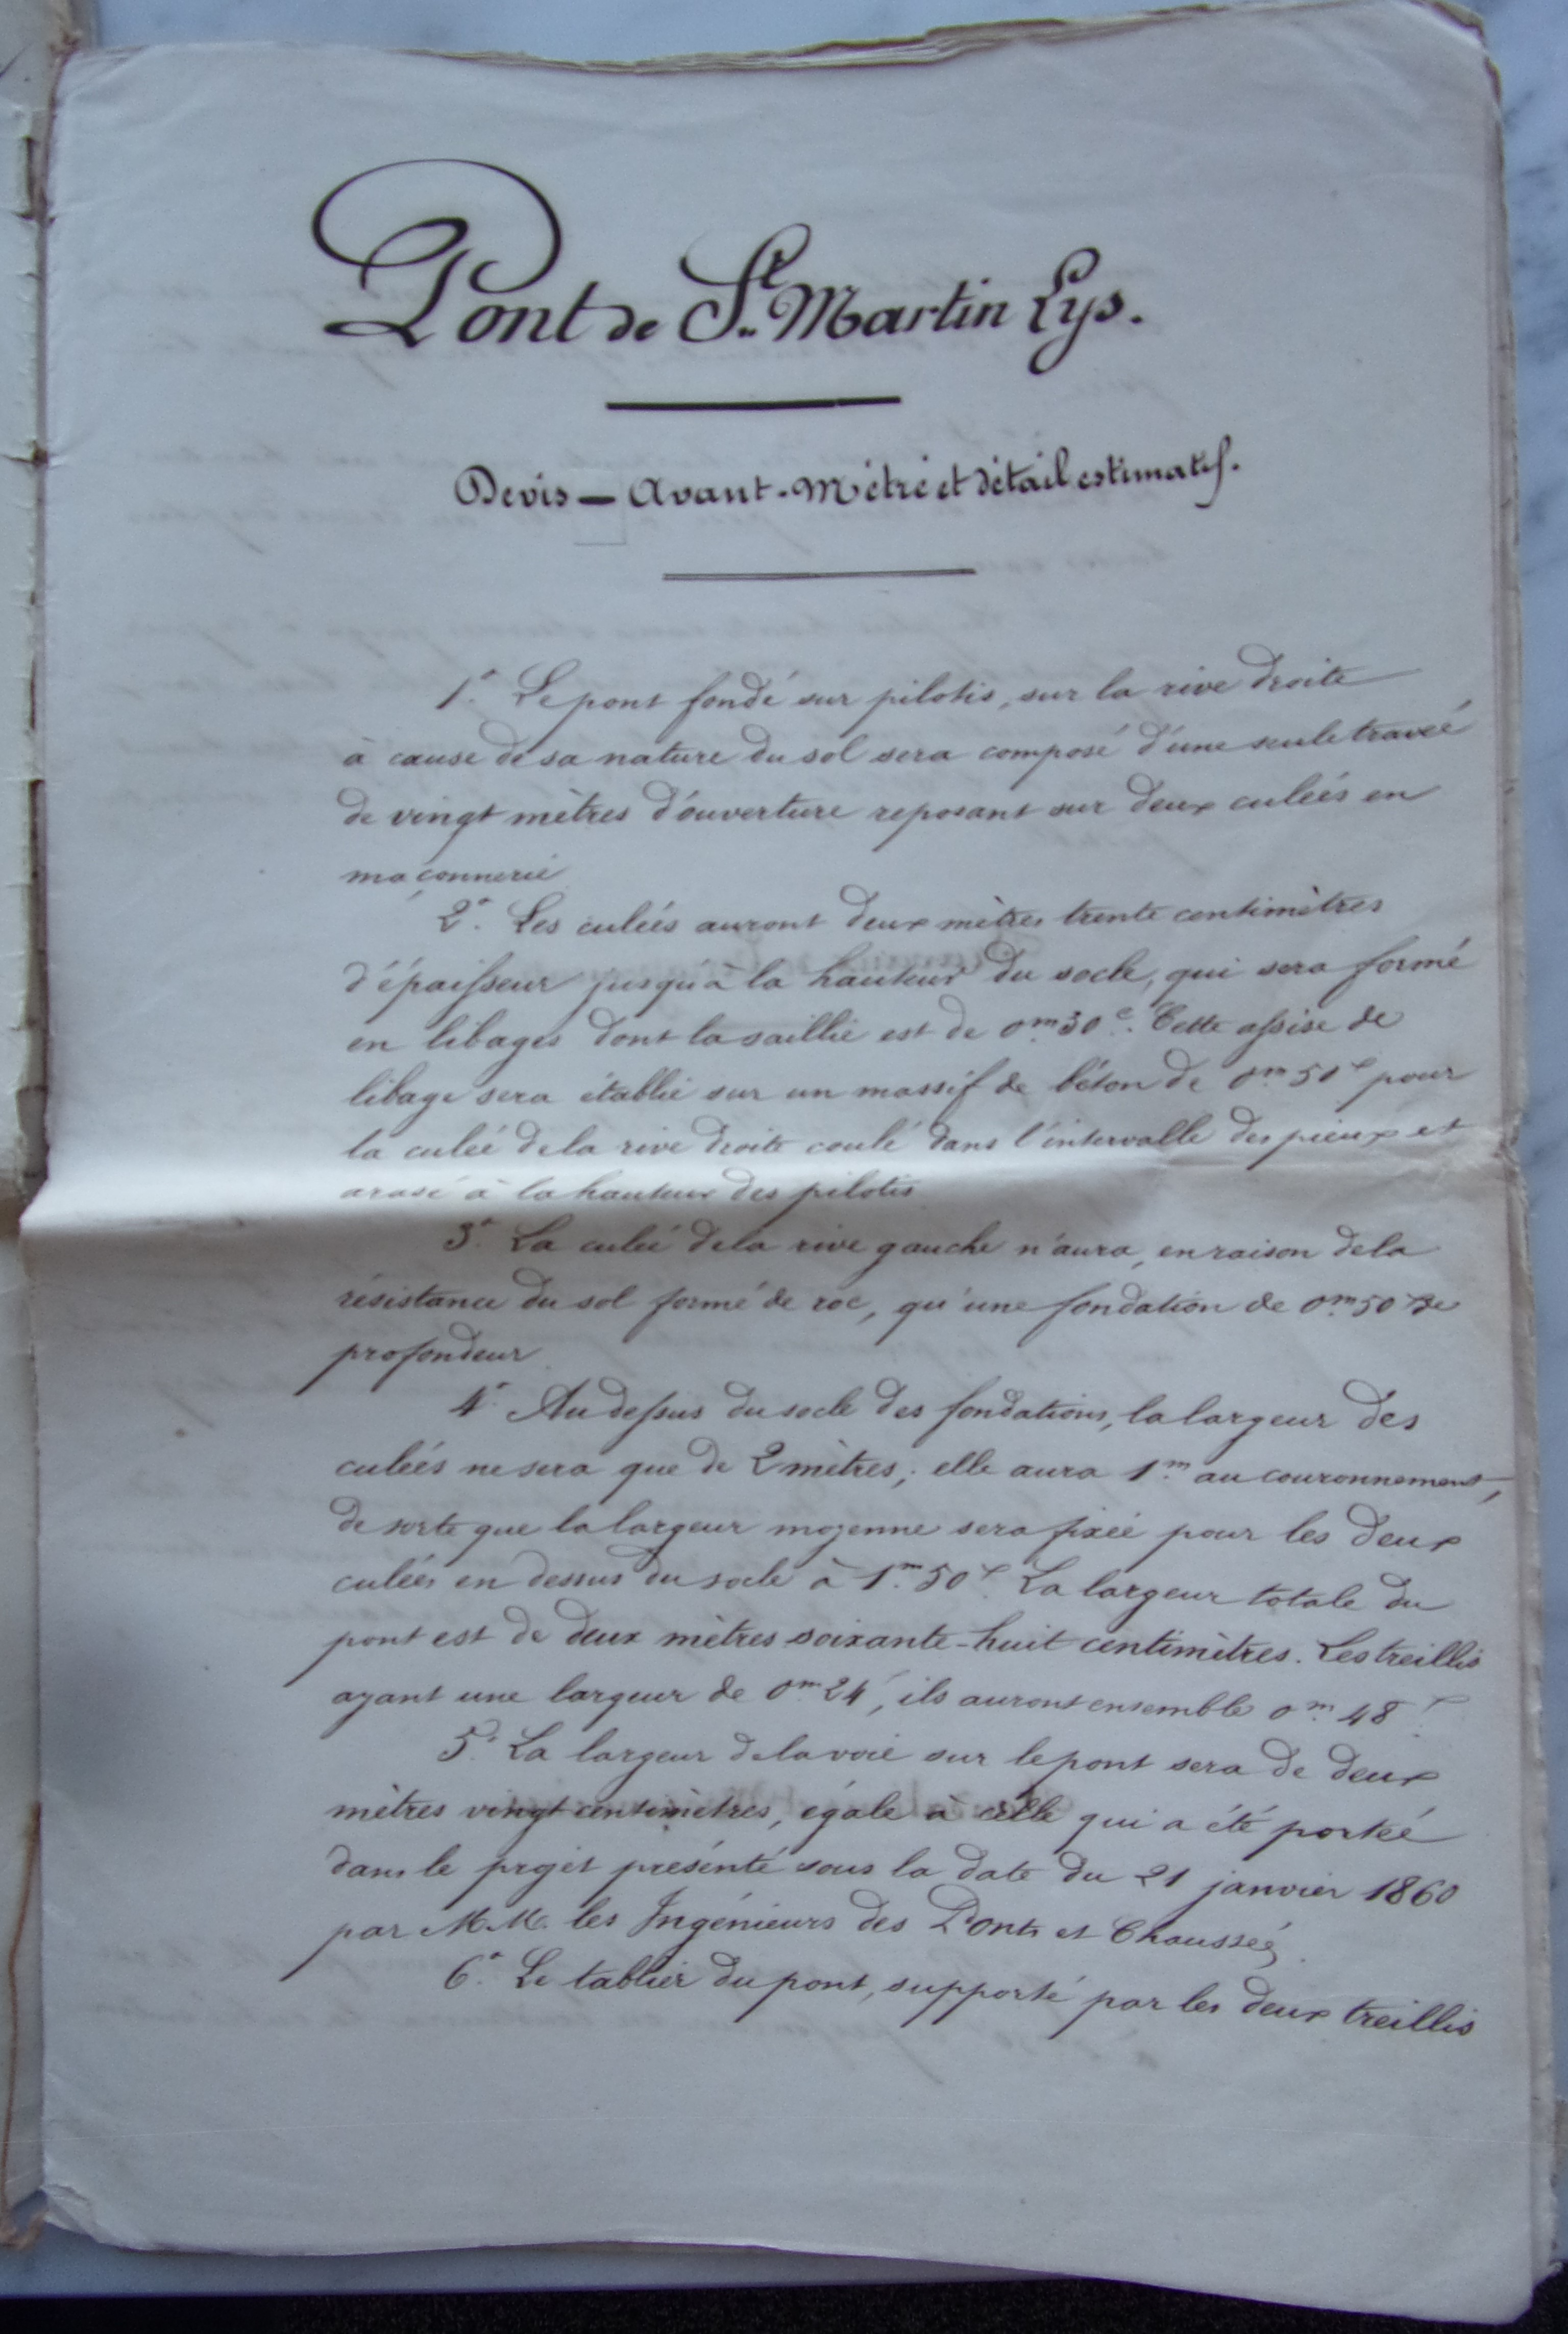 Pont de St. Martin Lys.
Devis — Avant-Métré et détail estimatif.
1° Le pont fondé sur pilotis, sur la rive droite
à cause de sa nature du sol sera composé d'une seule travée
de vingt mètres d'ouverture reposant sur deux culées en
maçonnerie
2° Les culées auront deux mètres trente centimètres
d'épaisseur jusqu'à la hauteur du socle, qui sera formé
en libages dont la saillie est de 0m30c. Cette assise de
libage sera établie sur un massif de béton de 0m50c pour
la culée de la rive droite coulé dans l'intervalle des pieux et
arasé à la hauteur des pilotis
3° La culée de la rive gauche n'aura, en raison de la
résistance du sol formé de roc, qu'une fondation de 0m50 de
profondeur
4° Au dessus du socle des fondations, la largeur des
culées ne sera que de 2 mètres; elle aura 1m au couronnement,
de sorte que la largeur moyenne sera fixée pour les deux
culées en dessus du socle à 1m50c. La largeur totale du
pont est de deux mètres soixante-huit centimètres. Les treillis
ayant une largeur de 0m24, ils auront ensemble 0m48c.
5° La largeur de la voie sur le pont sera de deux
mètres vingt centimètres, égale à celle qui a été portée
dans le projet présenté sous la date du 21 janvier 1860
par M.M. les Ingénieurs des Ponts et Chaussées.
6° Le tablier du pont, supporté par les deux treillis